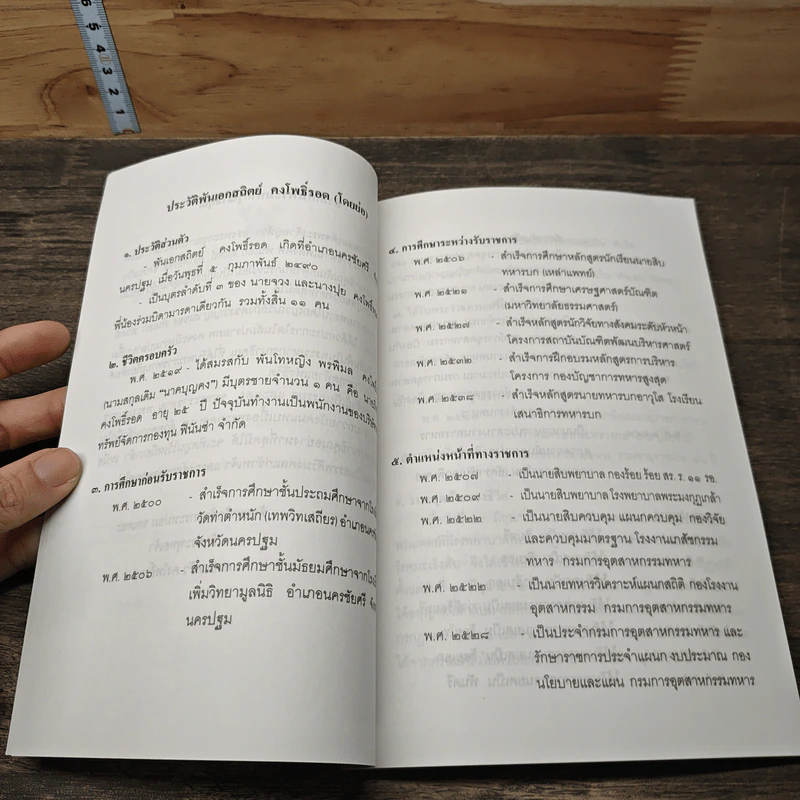 6 5 4 3 2 1
ประวัติพันเอกสถิตย์ คงโพธิ์รอด (โดยย่อ)
๑. ประวัติส่วนตัว
- พันเอกสถิตย์ คงโพธิ์รอด เกิดที่อำเภอนครชัยศรี
นครปฐม เมื่อวันพุธที่ ๕ กุมภาพันธ์ ๒๔๙๐
- เป็นบุตรลำดับที่ ๓ ของ นายจวง และนางปุย คงโพธิ์รอด
พี่น้องร่วมบิดามารดาเดียวกัน รวมทั้งสิ้น ๑๑ คน
๒. ชีวิตครอบครัว
พ.ศ. ๒๕๑๙ - ได้สมรสกับ พันโทหญิง พรพิมล
(นามสกุลเดิม "นาคบุญคง") มีบุตรชายจำนวน ๑ คน คือ
คงโพธิ์รอด อายุ ๒๕ ปี ปัจจุบันทำงานเป็นพนักงานของบริษัท
ทรัพย์จัดการกองทุน ฟินันซ่า จำกัด
๓. การศึกษาก่อนรับราชการ
พ.ศ. ๒๕๐๐ - สำเร็จการศึกษาชั้นประถมศึกษาจาก
วัดท่าตำหนัก (เทพวิทเสถียร)
จังหวัดนครปฐม
พ.ศ. ๒๕๐๖ - สำเร็จการศึกษาชั้นมัธยมศึกษาจาก
เพิ่มวิทยามูลนิธิ อำเภอนครชัยศรี
นครปฐม
๔. การศึกษาระหว่างรับราชการ
พ.ศ. ๒๕๐๖ - สำเร็จการศึกษาหลักสูตรนักเรียนนายสิบ
ทหารบก (เหล่าแพทย์)
พ.ศ. ๒๕๒๑ - สำเร็จการศึกษาเศรษฐศาสตร์บัณฑิต
(มหาวิทยาลัยธรรมศาสตร์)
พ.ศ. ๒๕๒๗ - สำเร็จหลักสูตรนักวิจัยทางสังคมระดับหัวหน้า
โครงการสถาบันบัณฑิตพัฒนบริหารศาสตร์
พ.ศ. ๒๕๓๒ - สำเร็จการฝึกอบรมหลักสูตรการบริหาร
โครงการ กองบัญชาการทหารสูงสุด
พ.ศ. ๒๕๓๘ - สำเร็จหลักสูตรนายทหารบกอาวุโส โรงเรียน
เสนาธิการทหารบก
๕. ตำแหน่งหน้าที่ทางราชการ
พ.ศ. ๒๕๐๗ - เป็นนายสิบพยาบาล กองร้อย ร้อย สร. ร. ๑๑ รอ.
พ.ศ. ๒๕๐๙ - เป็นนายสิบพยาบาล โรงพยาบาลพระมงกุฎเกล้า
พ.ศ. ๒๕๒๒ - เป็นนายสิบควบคุม แผนกควบคุม กองวิจัย
และควบคุมมาตรฐาน โรงงานเภสัชกรรม
ทหาร กรมการอุตสาหกรรมทหาร
พ.ศ. ๒๕๒๒ - เป็นนายทหารวิเคราะห์แผนกสถิติ กองโรงงาน
อุตสาหกรรม กรมการอุตสาหกรรมทหาร
พ.ศ. ๒๕๒๘ - เป็นประจำกรมการอุตสาหกรรมทหาร และ
รักษาราชการประจำแผนก งบประมาณ กอง
นโยบายและแผน กรมการอุตสาหกรรมทหาร